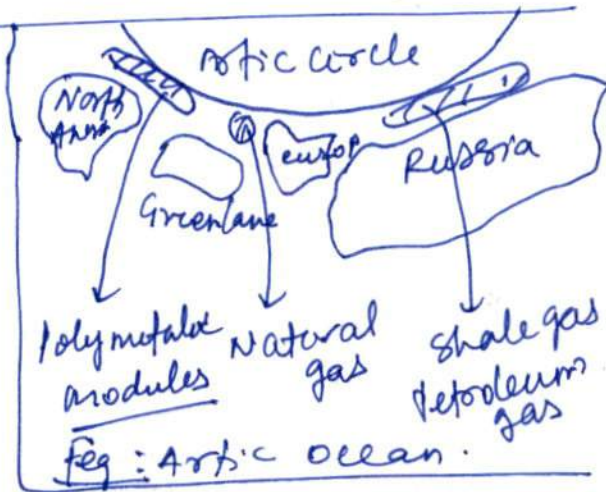 Artic Circle
North
Amer
europ
Russia
Greenlane
Polymetalic
modules
Natural
gas
Shale gas
Petroleum
gas
Feg : Artic Ocean.